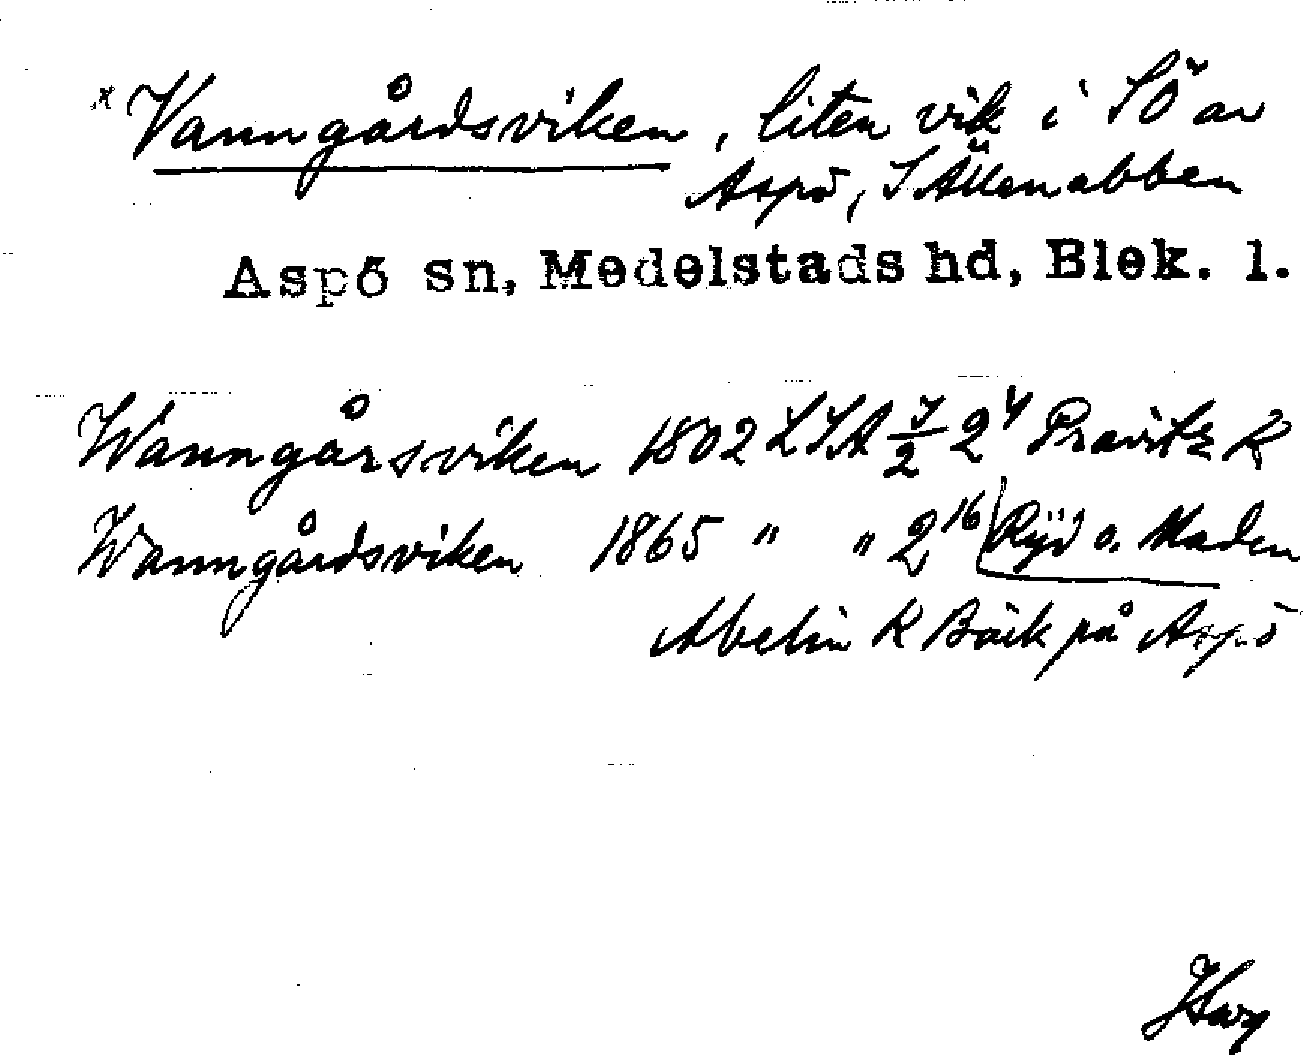 x Vanngårdsviken, liten vik i SÖ av
Aspö, S Ällenabben
Aspö sn, Medelstads hd, Blek. l.
Wanngårsviken 1802 LSA J/2 2⁴ Pravitz K
Wanngårdsviken 1865 " " 2¹⁶ Ryd o. Maden
Abelin K Bäik på Aspö